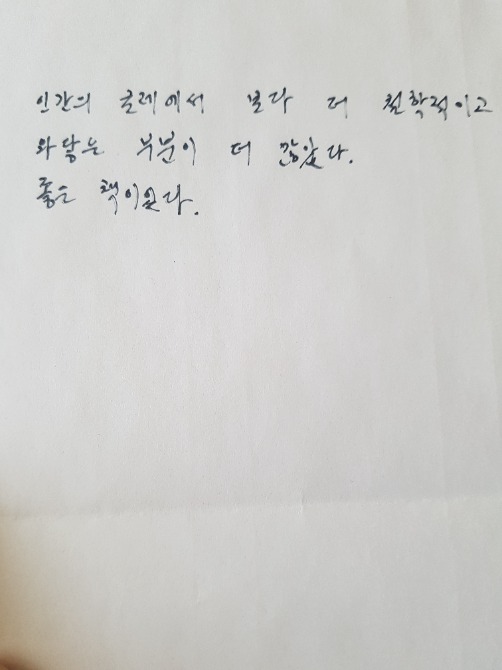 인간의 굴레에서 보다 더 철학적이고
와닿는 부분이 더 많았다.
좋은 책이었다.